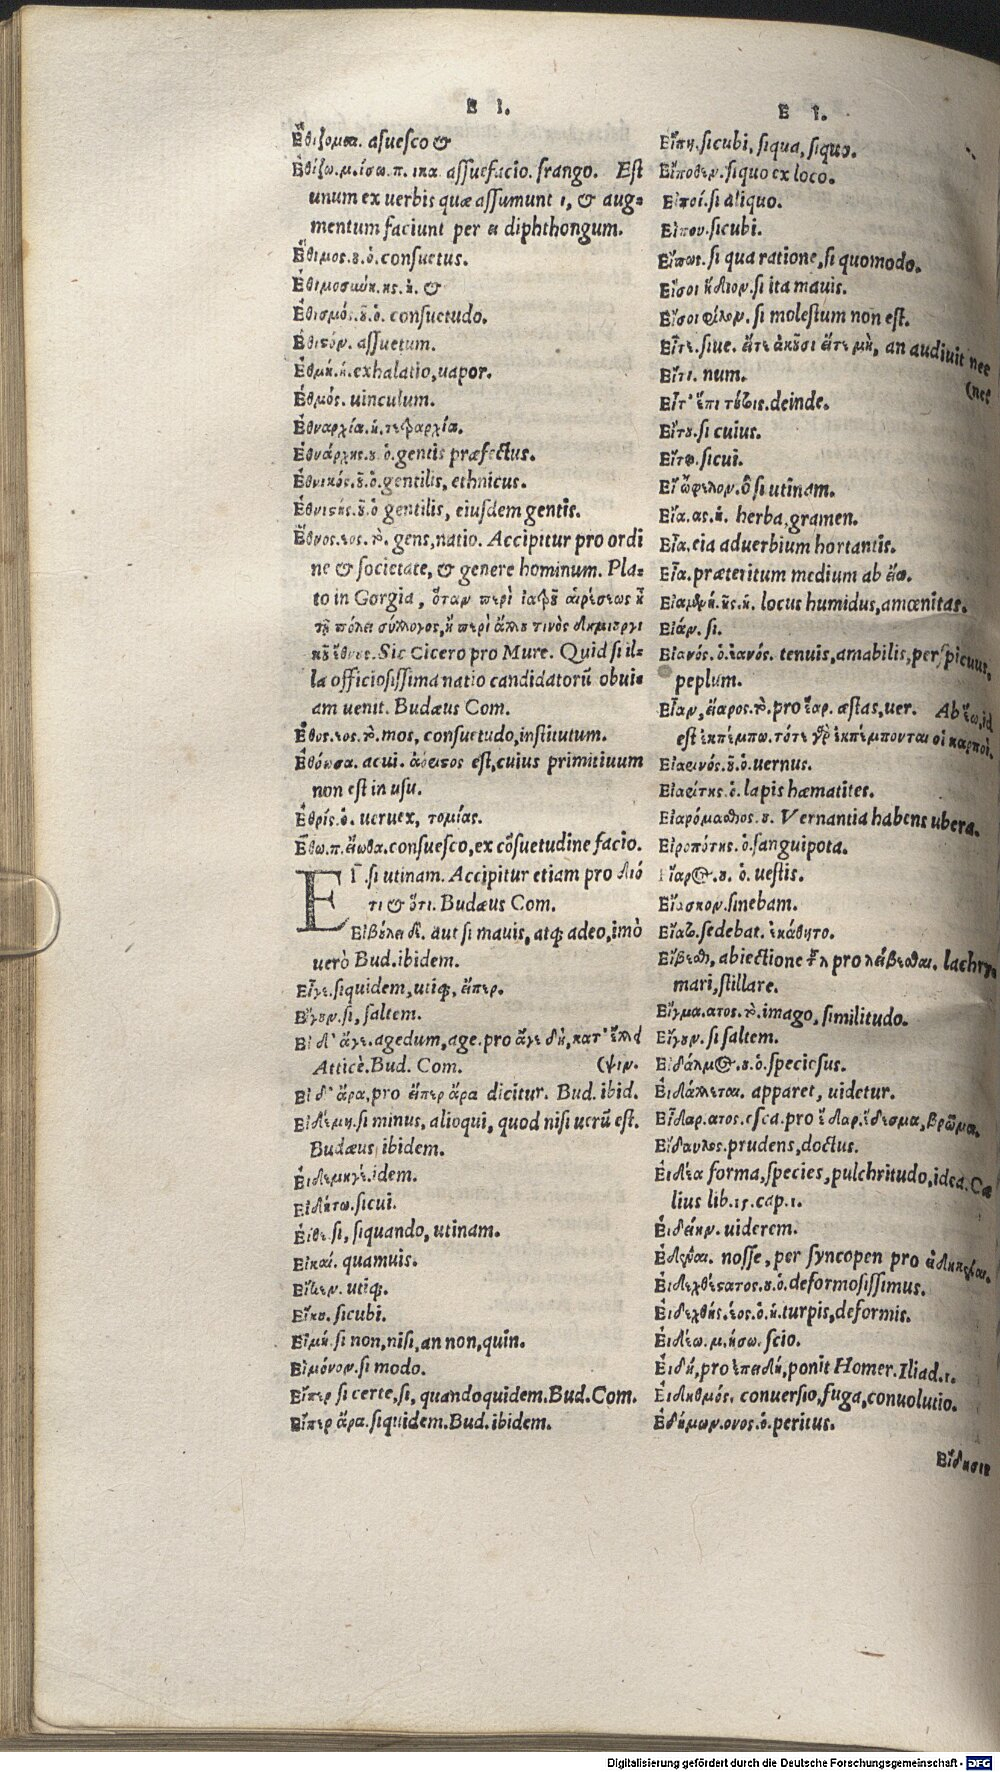 E I.
Ἐθίζομαι. asuesco &
Ἐθίζω.μ.ίσω.π.ικα assuefacio. frango. Est
unum ex uerbis quæ assumunt ι, & aug=
mentum faciunt per ει diphthongum.
Ἔθιμος.ου.ὁ.consuetus.
Ἐθιμοσύνη.ης.ἡ. &
Ἐθισμός.οῦ.ὁ. consuetudo.
Ἐθιστόν. assuetum.
Ἐθμή.ἡ.exhalatio,uapor.
Ἐθμός. uinculum.
Ἐθναρχία.ἡ.τετραρχία.
Ἐθνάρχης.ου.ὁ.gentis præfectus.
Ἐθνικός.οῦ.ὁ.gentilis, ethnicus.
Ἐθνίτης.οῦ.ὁ gentilis, eiusdem gentis.
Ἔθνος.εος.τὸ. gens,natio. Accipitur pro ordi
ne & societate, & genere hominum. Pla=
to in Gorgia, ὅταν περὶ ἰατρῶν αἱρέσεως ᾖ
τῇ πόλει σύλλογος,ἢ περὶ ἄλλου τινὸς δημιουργι
κοῦ ἔθνους.Sic Cicero pro Mure. Quid si il=
la officiosissima natio candidatorũ obui=
am uenit. Budæus Com.
Ἔθος.εος.τὸ.mos, consuetudo,institutum.
Ἔθόωσα. acui. ἀόριστος est,cuius primitiuum
non est in usu.
Ἐθρίς.ὁ. ueruex, τομίας.
Ἔθω.π.εἴωθα.consuesco,ex cõsuetudine facio.
EἸ.si utinam. Accipitur etiam pro διό
τι & ὅτι. Budæus Com.
Εἰβούλει δὲ. aut si mauis, atq; adeo,imò
uerò Bud.ibidem.
Εἴγε.siquidem,utiq;, εἴπερ.
Εἴγουν.si, saltem.
Εἰ δ' ἄγε.agedum,age.pro ἄγε δὴ,κατ' ἔλλει
Atticè.Bud. Com. (ψιν.
Εἰ δ' ἄρα,pro εἴπερ ἄρα dicitur. Bud. ibid.
Εἰδέμη.si minus, alioqui, quod nisi uerũ est.
Budæus ibidem.
Εἰδεμήγε.idem.
Εἰδήτω.sicui.
Εἴθε.si, siquando, utinam.
Εἰκαί. quamuis.
Εἴκεν. utiq;.
Εἴκου. sicubi.
Εἰμή.si non,nisi, an non,quin.
Εἰμόνον.si modo.
Εἴπερ si certe,si, quandoquidem.Bud.Com.
Εἴπερ ἄρα.siquidem.Bud.ibidem.
E I.
Εἴπη.sicubi, siqua, siquo.
Εἴποθεν.siquo ex loco.
Εἰποί.si aliquo.
Εἴπου.sicubi.
Εἴπως.si qua ratione,si quomodo.
Εἴσοι ἥδιον.si ita mauis.
Εἴσοι φίλον. si molestum non est.
Εἴτε.siue. εἴτε ἀκούσι εἴτε μὴ, an audiuit nec
Εἴτι. num. (nec
Εἶτ' ἐπὶ τούτοις.deinde.
Εἴτου.si cuius.
Εἴτῳ.sicui.
Εἰ ὤφελον.ô si utinam.
Εἴα.ας.ἡ. herba,gramen.
Εἶα.eia aduerbium hortantis.
Εἶα.præteritum medium ab ἔω.
Εἰαμενή.ῆς.ἡ. locus humidus,amœnitas.
Εἰάν. si.
Εἰανός.ὁ.ἑανός. tenuis,amabilis,perspicuus,
peplum.
Εἶαρ, εἴαρος.τὸ.pro ἔαρ. æstas,uer. Ab ἔω,id
est ἐκπέμπω.τότε γὰρ ἐκπέμπονται οἱ καρποὶ.
Εἰαρινός.οῦ.ὁ.uernus.
Εἰαρίτης.ὁ.lapis hæmatites.
Εἰαρόμασθος.ου. Vernantia habens ubera.
Εἰαροπότης.ὁ.sanguipota.
Εἴαρος.ου. ὁ.uestis.
Εἴασκον.sinebam.
Εἴατο.sedebat. ἐκάθητο.
Εἴβεσθαι, abiectione τοῦ λ pro λείβεσθαι. lachry=
mari,stillare.
Εἴγμα.ατος.τὸ.imago, similitudo.
Εἴγουν.si saltem.
Εἰδάλιμος.ου.ὁ.speciosus.
Εἰδάλλεται. apparet, uidetur.
Εἶδαρ.ατος.esca.pro ἔδαρ.ἔδεσμα,βρῶμα.
Εἴδαυλος.prudens,doctus.
Εἰδέα forma,species, pulchritudo,idea.Cæ
lius lib.15.cap.1.
Εἰδείην. uiderem.
Εἰδέναι. nosse, per syncopen pro εἰδηκέναι.
Εἰδεχθέστατος.ου.ὁ.deformosissimus.
Εἰδεχθής.έος.ὁ.ἡ.turpis,deformis.
Εἰδέω.μ.ήσω.scio.
Εἰδή,pro ἐπειδή,ponit Homer.Iliad.1.
Εἰδηθμός. conuersio,fuga,conuolutio.
Εἰδήμων.ονος.ὁ.peritus.
Εἴδησις